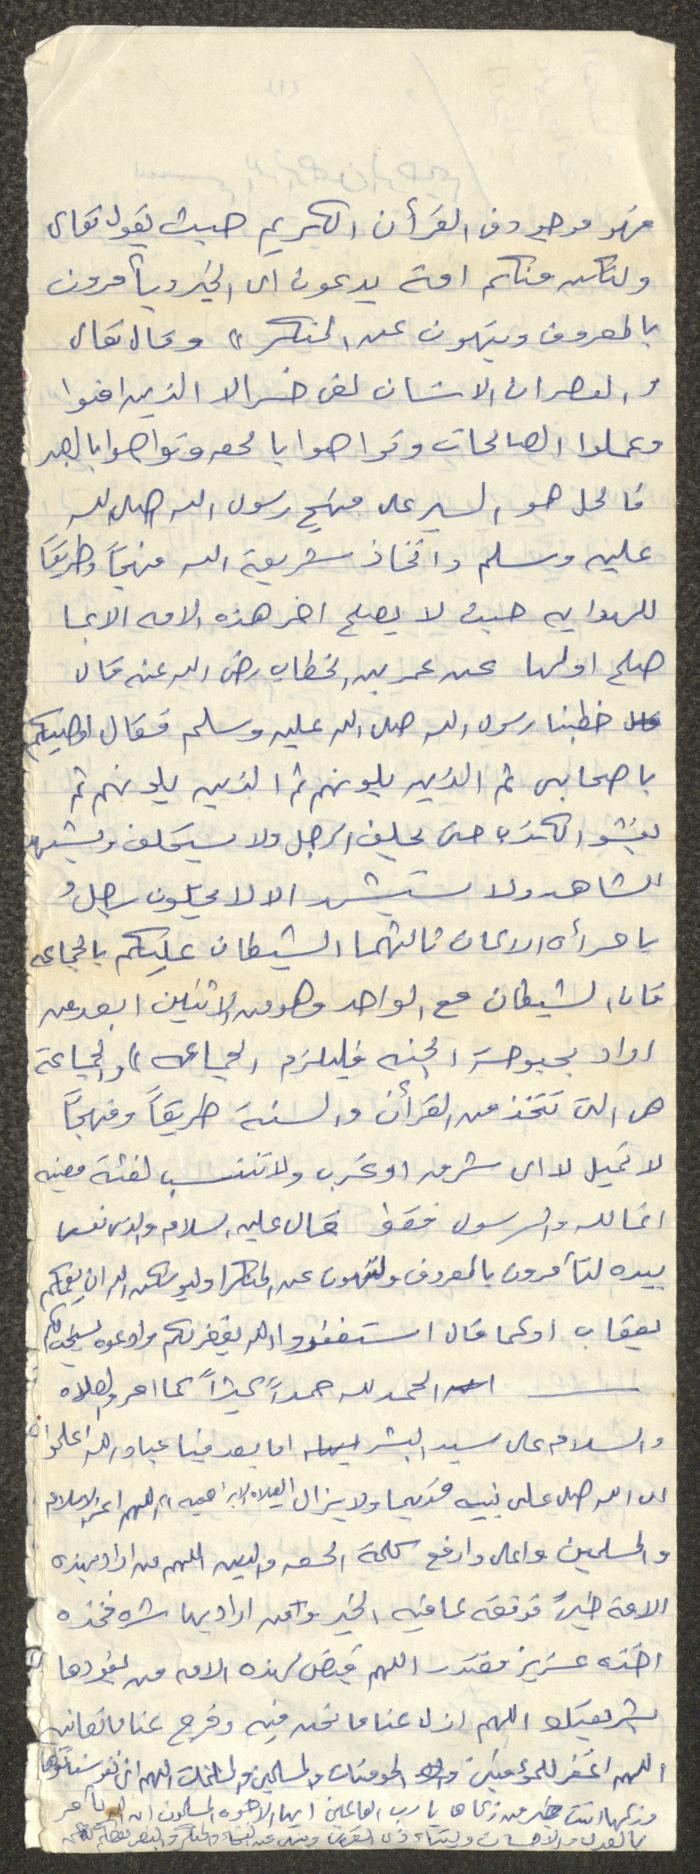 فهو موجود في القرأن الكريم حيث يقول تعالى
ولتكن منكم امة يدعون الى الخير ويأمرون
بالمعروف وينهون عن المنكر )) وقال تعالى
والعصر ان الانسان لفي خسر الا الذين امنوا
وعملوا الصالحات وتواصوا بالحق وتواصوا بالصبر
فالحل هو السير على منهج رسول الله صلى الله
عليه وسلم واتخاذ شريعة الله منهجاً وطريقاً
للهدايه حيث لا يصلح اخر هذه الامه الا بما
صلح اولها عن عمر بن الخطاب رضي الله عنه قال
خطبنا رسول الله صلى الله عليه وسلم فقال اوصيكم
باصحابي ثم الذين يلونهم ثم الذين يلونهم ثم
يفشو الكذب حتى يحلف الرجل ولا يستحلف ويشهد
الشاهد ولا يستشهد الا لا يخلون رجل
بامرأه الا كان ثالثهما الشيطان عليكم بالجماعه
فان الشيطان مع الواحد وهو من الاثنين ابعد من
اراد بحبوحة الجنه فليلزم الجماعه )) والجماعة
هي التي تتخذ من القرأن والسنة طريقاً ومنهجاً
لا تميل لا الى شرق او غرب ولا تنتسب لفئة معينه
انما لله والرسول فقط قال عليه السلام والذي نفسي
بيده لتأمرون بالمعروف ولتنهون عن المنكر او ليوشكن الله ان يعمكم
بعقاب او كما قال استغفروا الله يغفر لكم وادعوه يستجب لكم
الحمد لله حمداً كثيراً كما امر والصلاه
والسلام على سيد البشر اما بعد فيا عباد الله اعلموا
ان الله صلى على نبيه قديما ولا يزال الصلاه الابراهيميه )) اللهم اعز الاسلام
والمسلمين واعلي وارفع كلمة الحق والدين اللهم من اراد بهذه
الامة خيراً فوفقه لما فيه الخير ومن اراد بها شره فخذه
اخذه عزيز مقتدر اللهم قيض لهذه الامه من يقودها
بشريعتك اللهم ازل عنا ما نحن فيه وفرج عنا ما نعانيه
اللهم اغفر للمؤمنين والمؤمنات والمسلمين والمسلمات اللهم اتي نفوسنا تقواها
وزكها انت خير من زكاها يا رب العالمين ايها الاخوه المسلمون ان الله يأمر
بالعدل والاحسان وايتاء ذي القربى وينهى عن الفحشاء والمنكر والبغي يعظكم